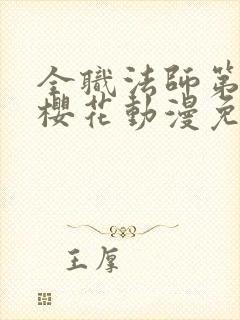 全職法師第
櫻花動漫免
王厚